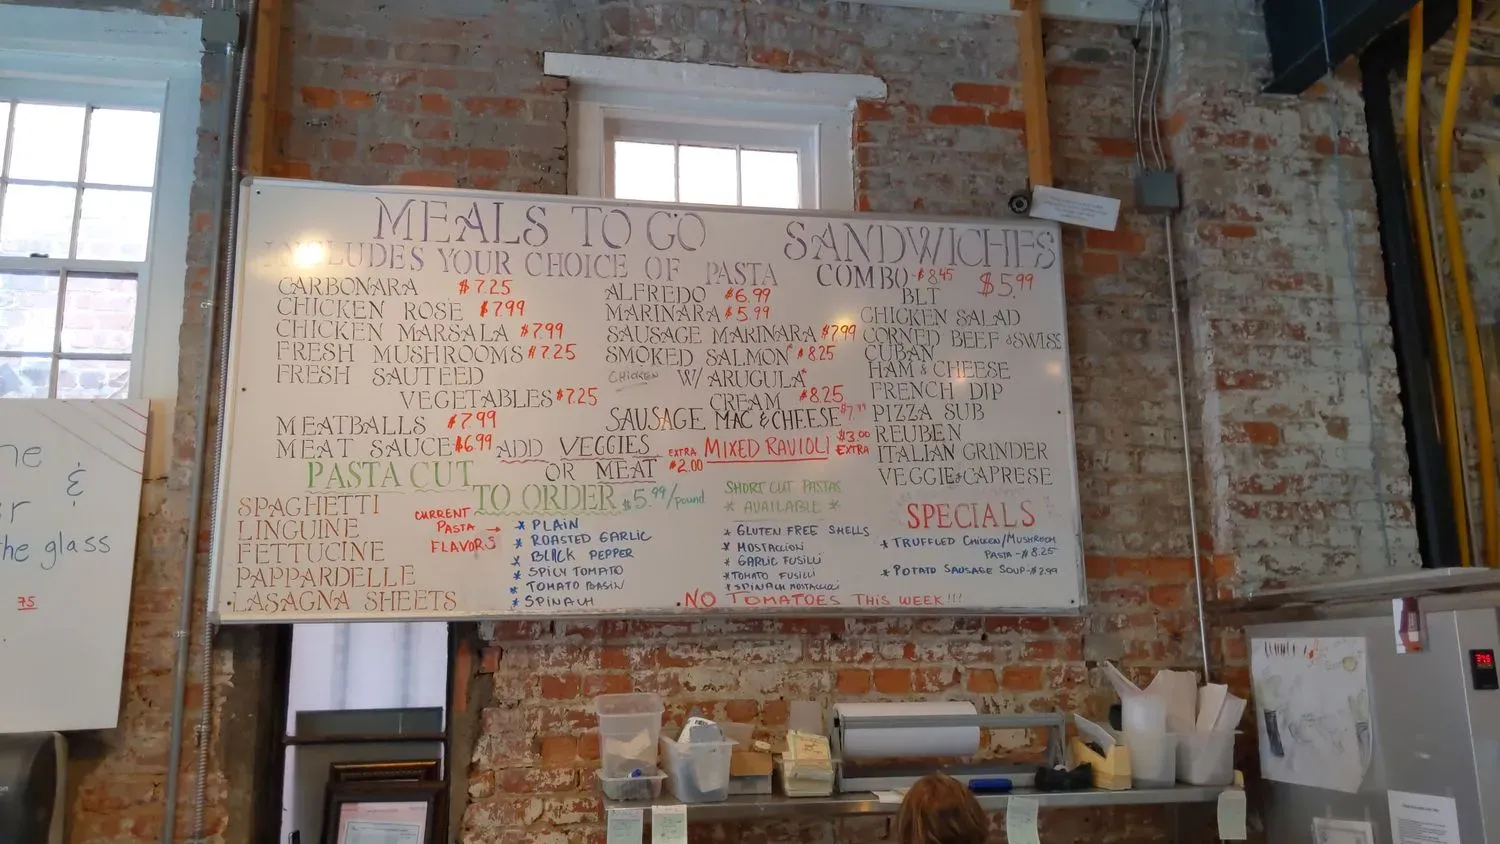 MEALS TO GO
INCLUDES YOUR CHOICE OF PASTA
CARBONARA $7.25
CHICKEN ROSE $7.99
CHICKEN MARSALA $7.99
FRESH MUSHROOMS $7.25
FRESH SAUTEED
VEGETABLES $7.25
MEATBALLS $7.99
MEAT SAUCE $6.99
ALFREDO $6.99
MARINARA $5.99
SAUSAGE MARINARA $7.99
SMOKED SALMON $8.25
CHICKEN W/ ARUGULA
CREAM $8.25
SAUSAGE MAC & CHEESE $7.99
ADD VEGGIES
OR MEAT
EXTRA
$2.00
MIXED RAVIOLI $3.00
EXTRA
SANDWICHES
COMBO $8.45 $5.99
BLT
CHICKEN SALAD
CORNED BEEF & SWISS
CUBAN
HAM & CHEESE
FRENCH DIP
PIZZA SUB
REUBEN
ITALIAN GRINDER
VEGGIE CAPRESE
PASTA CUT
TO ORDER $5.99/pound
SPAGHETTI
LINGUINE
FETTUCINE
PAPPARDELLE
LASAGNA SHEETS
CURRENT
PASTA
FLAVORS
* PLAIN
* ROASTED GARLIC
* BLACK PEPPER
* SPICY TOMATO
* TOMATO BASIN
* SPINACH
SHORT CUT PASTAS
* AVAILABLE *
* GLUTEN FREE SHELLS
* MOSTACCIOLI
* GARLIC FUSILLI
* TOMATO FUSILLI
* SPINACH MOSTACCIOLI
SPECIALS
* TRUFFLED CHICKEN/MUSHROOM
PASTA - $8.25
* POTATO SAUSAGE SOUP - $2.99
NO TOMATOES THIS WEEK!!!
&
the glass
75